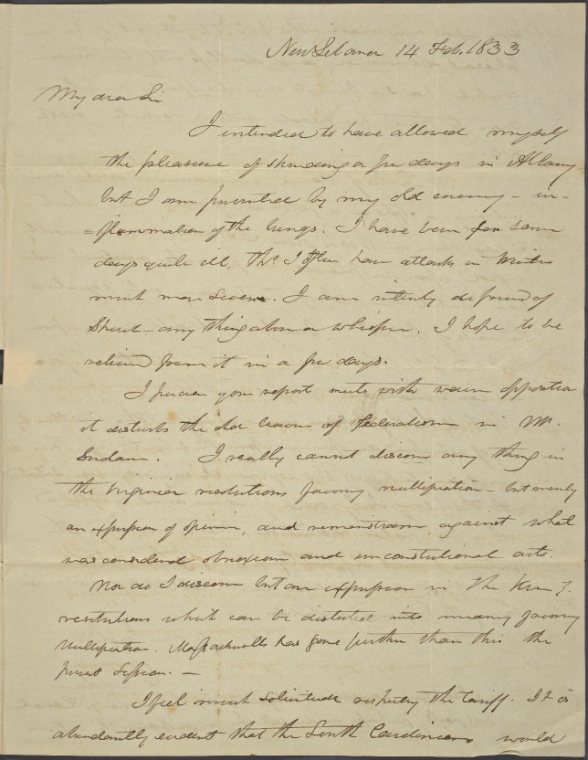 New Lebanon 14 Feb. 1833
My dear Sir
I intended to have allowed myself
the pleasure of spending a few days in Albany
but I am prevented by my old enemy - in-
=flammation of the lungs. I have been for some
days quite ill, tho I often have attacks in Winter
much more severe. I am entirely deprived of
Speech any thing above a whisper. I hope to be
relieved from it in a few days.
I perceive your report meets with warm opposition
it disturbs the dor of Federalism in Mr.
I really cannot discern any thing in
the Virginia resolutions favoring nullification - but merely
an expression of opinion, and remonstrance against what
was considered obnoxious and unconstitutional acts.
Nor do I discern but an expression in the Ken y.
resolutions which can be distorted into meaning favoring
Nullification. Massachusetts has gone further than this the
present Session. -
I feel much solicitude respecting the tariff. It is
abundantly evident that the South Carolinians would